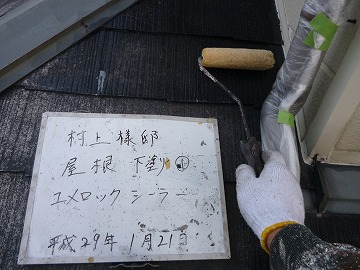 村上様邸
屋根 下塗り①
ユメロックシーラー
平成29年1月21日